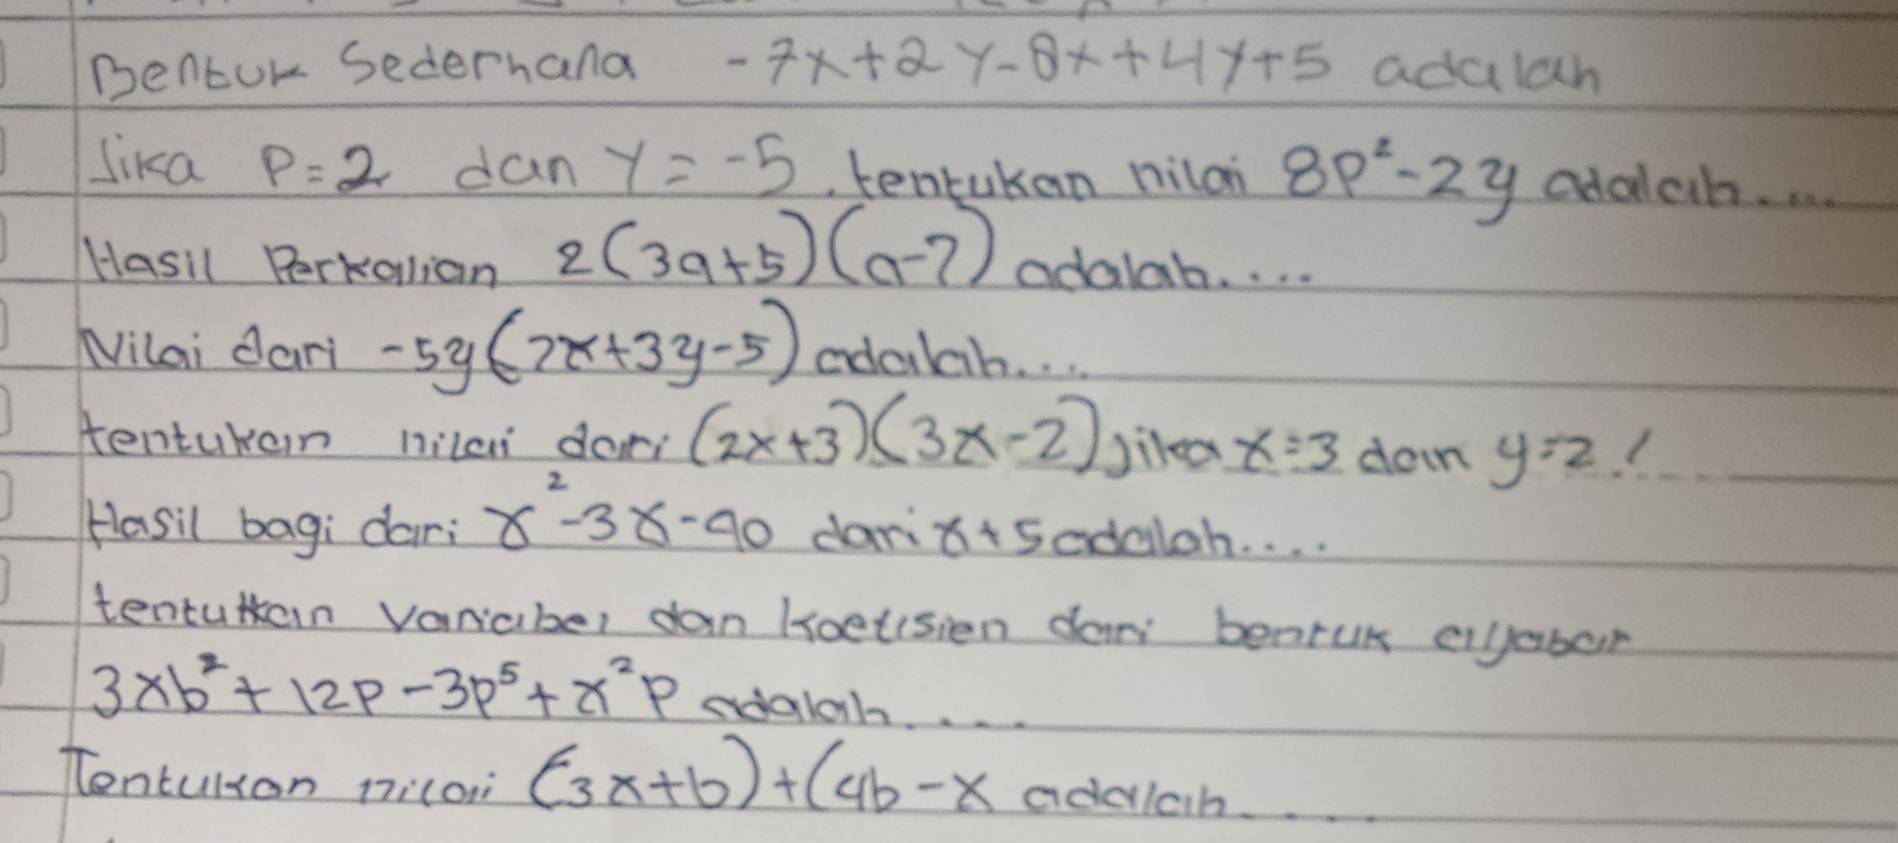 Bentuk Sederhana -7x+2y-8x+4y+5 adalah
Jika P=2 dan Y=-5. tentukan nilai 8P²-2y adalah....
Hasil Perkalian 2(3a+5)(a-7) adalah....
Nilai dari -5y(7x+3y-5) adalah...
tentukan nilai dari (2x+3)(3x-2) jika x=3 dan y=2!
Hasil bagi dari x²-3x-90 dari x+5 adalah....
tentukan variabel dan koefisien dari bentuk aljabar
3xb²+12p-3p⁵+x²p adalah....
Tentukan nilai (3x+b)+(4b-x adalah....